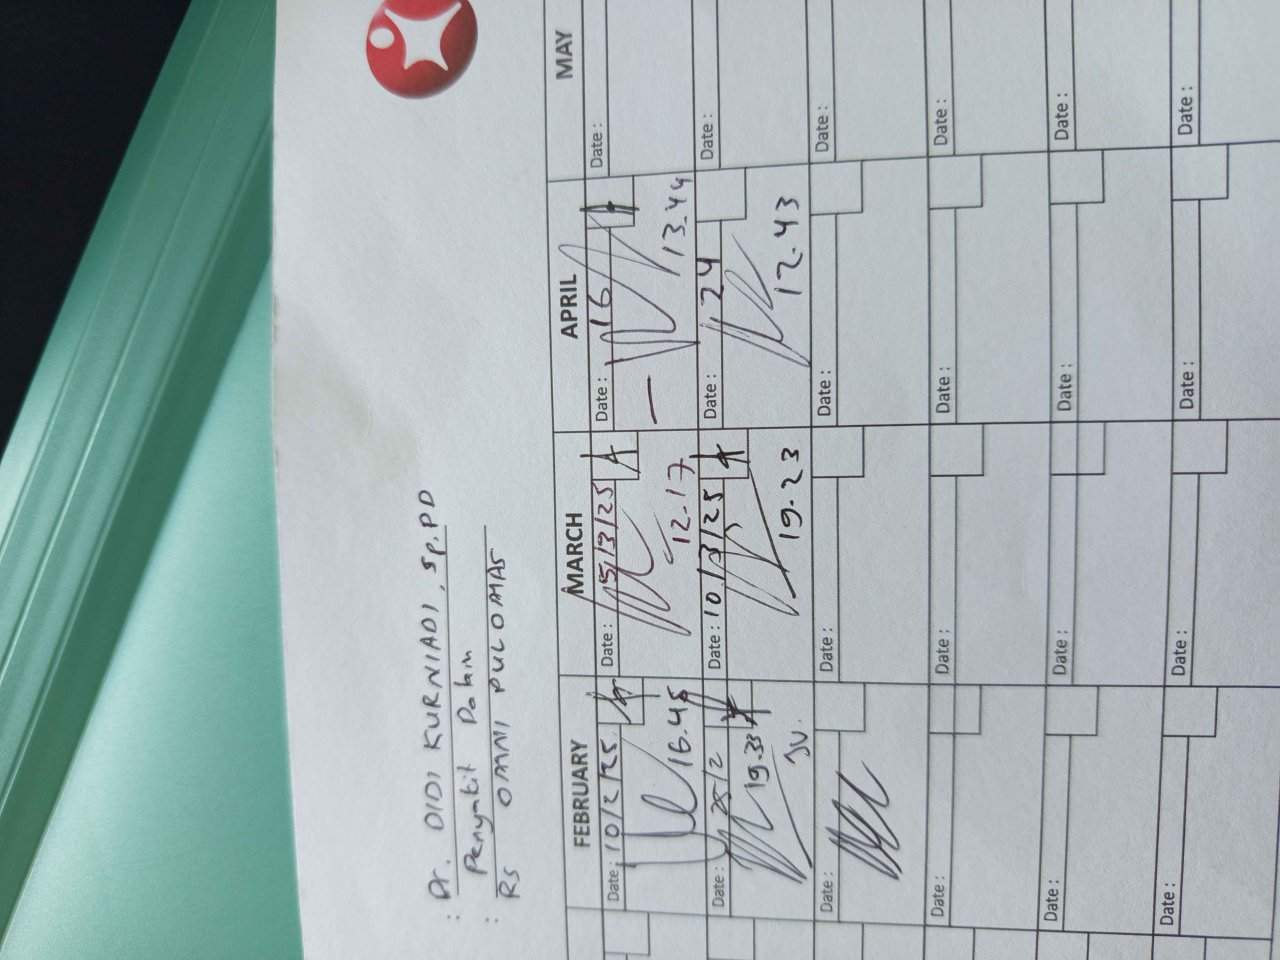 : Dr. DIDI KURNIADI, Sp.PD
Penyakit Dalam
: RS OMNI PULOMAS
FEBRUARY MARCH APRIL MAY
Date: 10/2/25 Date: 5/3/25 Date: 16 Date:
16.45 12.17 13.44
Date: 25/2 Date: 10/3/25 Date: 24 Date:
19.33 19.23 12.43
Date: Date: Date: Date:
Date: Date: Date: Date:
Date: Date: Date: Date:
Date: Date: Date: Date: